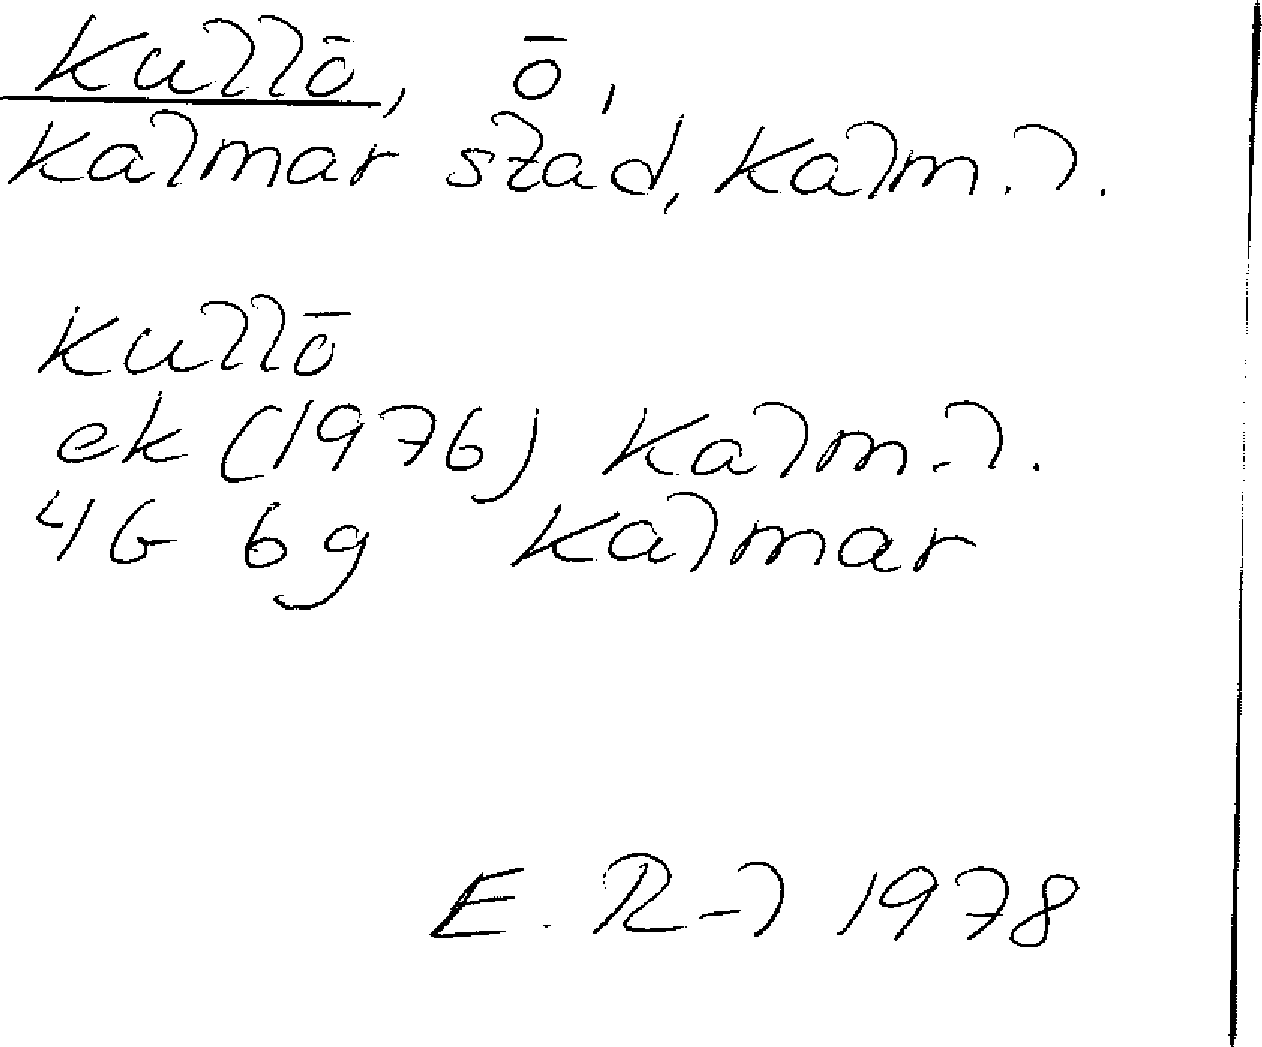 Kullö, ö,
Kalmar stad, Kalm. l.
Kullö
ek (1976) Kalm. l.
4G 6g Kalmar
E. R-l 1978